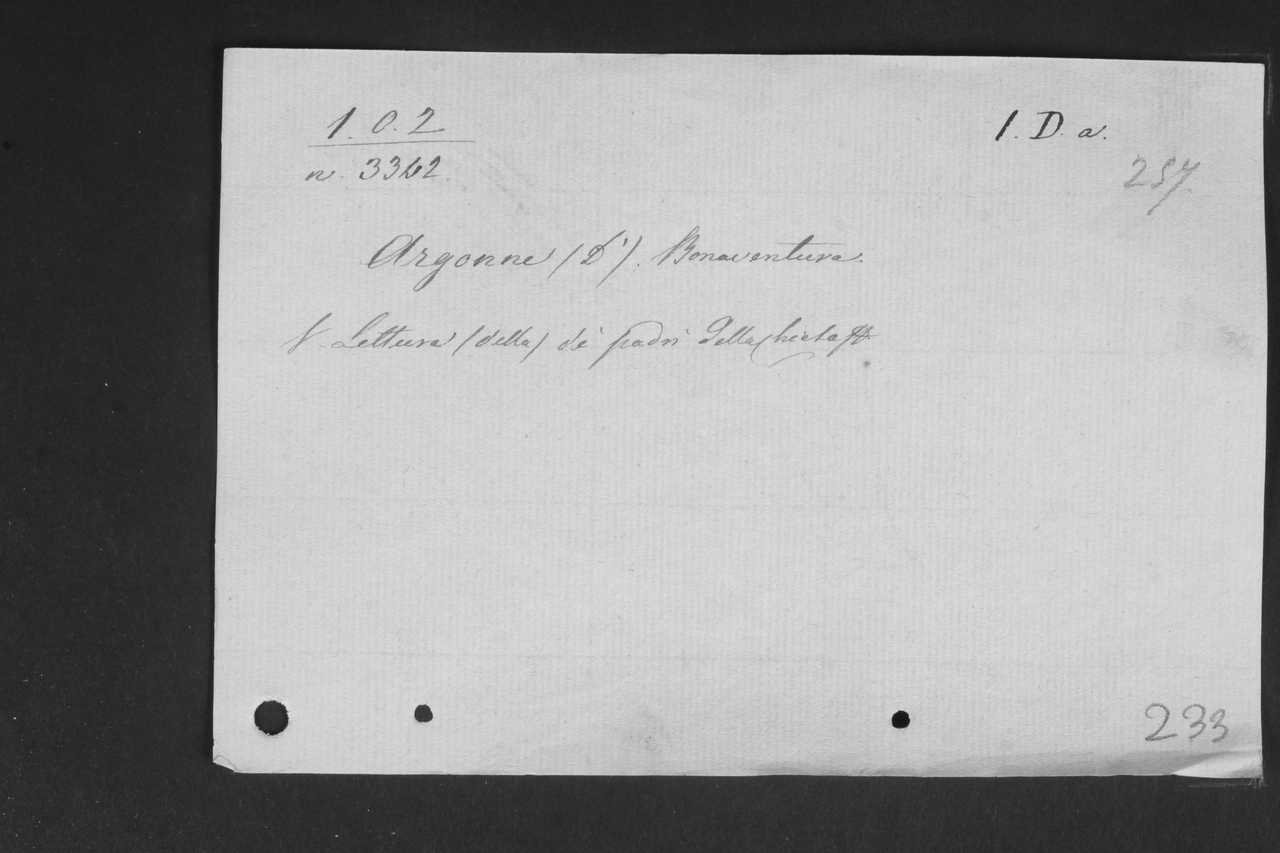 1. O. 2
n. 3362
1. D. a.
257
Argonne (D'). Bonaventura.
V. Lettura (della) de' padri della Chiesa
233